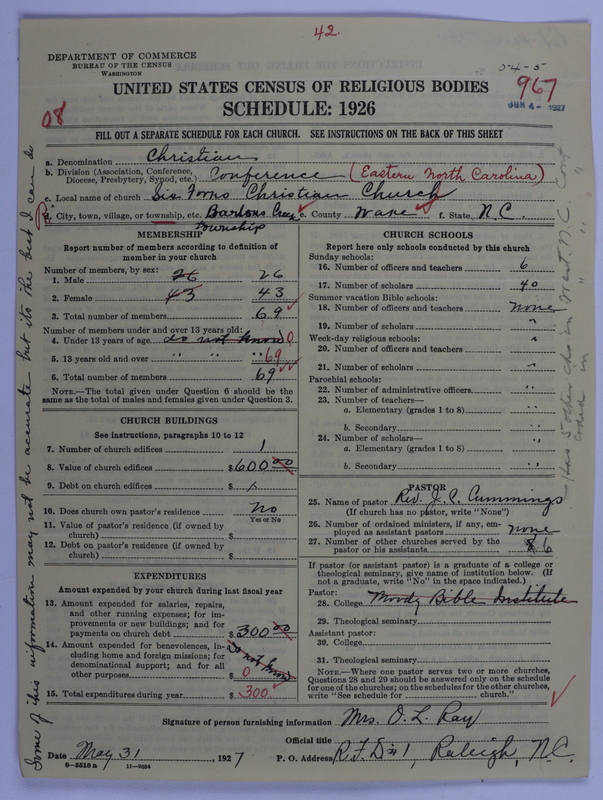 42.
DEPARTMENT OF COMMERCE
BUREAU OF THE CENSUS
WASHINGTON
04-5
967
JUN 4 - 1927
08
UNITED STATES CENSUS OF RELIGIOUS BODIES
SCHEDULE: 1926
FILL OUT A SEPARATE SCHEDULE FOR EACH CHURCH. SEE INSTRUCTIONS ON THE BACK OF THIS SHEET
a. Denomination Christian
b. Division (Association, Conference, Diocese, Presbytery, Synod, etc.) Conference (Eastern North Carolina)
c. Local name of church Six Forks Christian Church
d. City, town, village, or township, etc. Bartons Creek township e. County Wake f. State, N.C.
MEMBERSHIP
Report number of members according to definition of
member in your church
Number of members, by sex:
1. Male 26 26
2. Female 43 43
3. Total number of members 69
Number of members under and over 13 years old:
4. Under 13 years of age do not know 0
5. 13 years old and over " " " 69
6. Total number of members 69
NOTE.—The total given under Question 6 should be the
same as the total of males and females given under Question 3.
CHURCH BUILDINGS
See instructions, paragraphs 10 to 12
7. Number of church edifices 1
8. Value of church edifices $600.00
9. Debt on church edifices $ x
10. Does church own pastor's residence? No
Yes or No
11. Value of pastor's residence (if owned by
church) $
12. Debt on pastor's residence (if owned by
church) $
EXPENDITURES
Amount expended by your church during last fiscal year
13. Amount expended for salaries, repairs,
and other running expenses; for im-
provements or new buildings; and for
payments on church debt $300.00
14. Amount expended for benevolences, in-
cluding home and foreign missions; for
denominational support; and for all
other purposes $ do not know 0
15. Total expenditures during year $ 300
CHURCH SCHOOLS
Report here only schools conducted by this church
Sunday schools:
16. Number of officers and teachers 6
17. Number of scholars 40
Summer vacation Bible schools:
18. Number of officers and teachers none
19. Number of scholars "
Week-day religious schools:
20. Number of officers and teachers "
21. Number of scholars "
Parochial schools:
22. Number of administrative officers "
23. Number of teachers—
a. Elementary (grades 1 to 8) "
b. Secondary "
24. Number of scholars—
a. Elementary (grades 1 to 8) "
b. Secondary "
PASTOR
25. Name of pastor Rev. J. C. Cummings
(If church has no pastor, write "None")
26. Number of ordained ministers, if any, em-
ployed as assistant pastors none
27. Number of other churches served by the
pastor or his assistants 6
If pastor (or assistant pastor) is a graduate of a college or
theological seminary, give name of institution below. (If
not a graduate, write "No" in the space indicated.)
Pastor:
28. College Moody Bible Institute
29. Theological seminary
Assistant pastor:
30. College
31. Theological seminary
NOTE.—Where one pastor serves two or more churches,
Questions 28 and 29 should be answered only on the schedule
for one of the churches; on the schedules for the other churches,
write "See schedule for church."
Signature of person furnishing information Mrs. O. L. Ray
Official title
Date May 31, 1927 P. O. Address R.F.D #1, Raleigh, N.C.
8-5518a 11-9554
Some of this information may not be accurate but its the best I can do
Has 5 other chs in West N.C. Conf